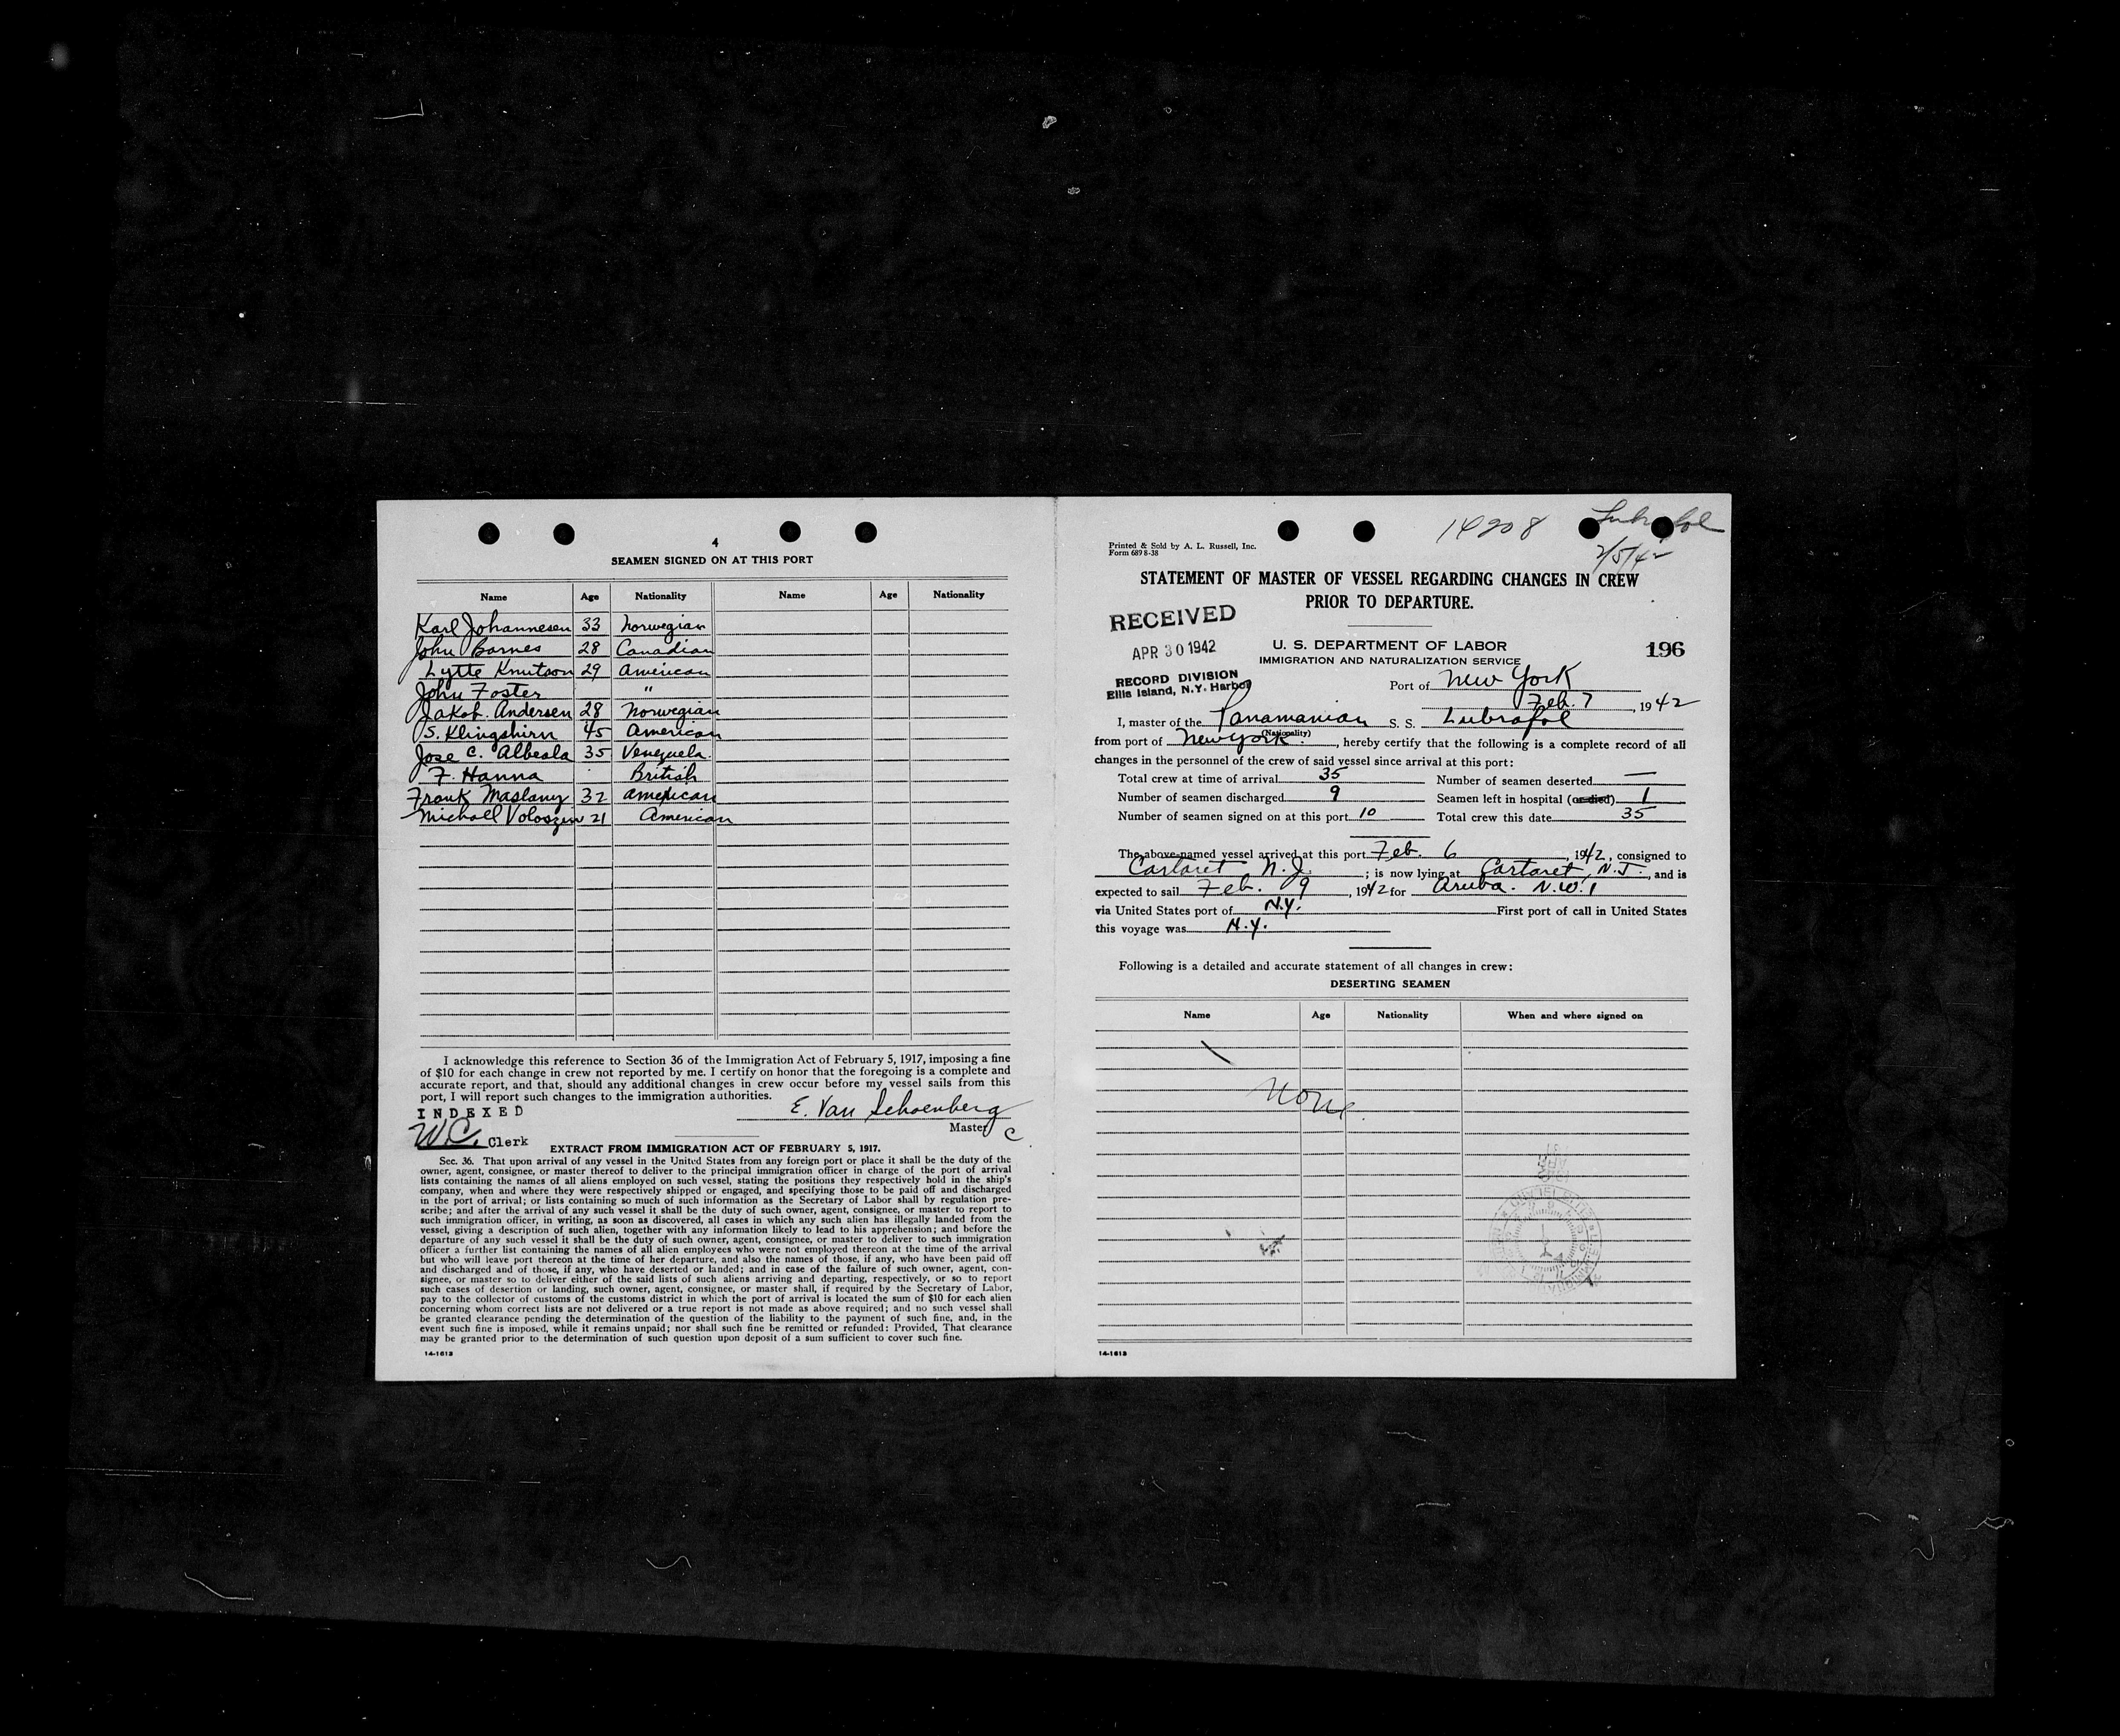 4
SEAMEN SIGNED ON AT THIS PORT
Name Age Nationality Name Age Nationality
Karl Johannesen 33 Norwegian
John Barnes 28 Canadian
Lytte Knutson 29 American
John Foster "
Jakob. Andersen 28 Norwegian
S. Klingshirn 45 American
Jose C. Albeola 35 Venezuela.
F. Hanna British
Frank Maslany 32 American
Michall Voloszin 21 American
I acknowledge this reference to Section 36 of the Immigration Act of February 5, 1917, imposing a fine
of $10 for each change in crew not reported by me. I certify on honor that the foregoing is a complete and
accurate report, and that, should any additional changes in crew occur before my vessel sails from this
port, I will report such changes to the immigration authorities.
INDEXED
E. Van Schoenberg
Master
W.C. Clerk
EXTRACT FROM IMMIGRATION ACT OF FEBRUARY 5, 1917.
Sec. 36. That upon arrival of any vessel in the United States from any foreign port or place it shall be the duty of the
owner, agent, consignee, or master thereof to deliver to the principal immigration officer in charge of the port of arrival
lists containing the names of all aliens employed on such vessel, stating the positions they respectively hold in the ship's
company, when and where they were respectively shipped or engaged, and specifying those to be paid off and discharged
in the port of arrival; or lists containing so much of such information as the Secretary of Labor shall by regulation pre-
scribe; and after the arrival of any such vessel it shall be the duty of such owner, agent, consignee, or master to report to
such immigration officer, in writing, as soon as discovered, all cases in which any such alien has illegally landed from the
vessel, giving a description of such alien, together with any information likely to lead to his apprehension; and before the
departure of any such vessel it shall be the duty of such owner, agent, consignee, or master to deliver to such immigration
officer a further list containing the names of all alien employees who were not employed thereon at the time of the arrival
but who will leave port thereon at the time of her departure, and also the names of those, if any, who have been paid off
and discharged and of those, if any, who have deserted or landed; and in case of the failure of such owner, agent, con-
signee, or master so to deliver either of the said lists of such aliens arriving and departing, respectively, or so to report
such cases of desertion or landing, such owner, agent, consignee, or master shall, if required by the Secretary of Labor,
pay to the collector of customs of the customs district in which the port of arrival is located the sum of $10 for each alien
concerning whom correct lists are not delivered or a true report is not made as above required; and no such vessel shall
be granted clearance pending the determination of the question of the liability to the payment of such fine, and, in the
event such fine is imposed, while it remains unpaid; nor shall such fine be remitted or refunded: Provided, That clearance
may be granted prior to the determination of such question upon deposit of a sum sufficient to cover such fine.
14-1613
14208 Lubrafol
2/5/42
Printed & Sold by A. L. Russell, Inc.
Form 689 8-38
STATEMENT OF MASTER OF VESSEL REGARDING CHANGES IN CREW
PRIOR TO DEPARTURE.
RECEIVED
APR 30 1942
RECORD DIVISION
Ellis Island, N.Y. Harbor
U. S. DEPARTMENT OF LABOR
IMMIGRATION AND NATURALIZATION SERVICE
196
Port of New York
Feb. 7, 1942
I, master of the Panamanian S. S. Lubrafol
(Nationality)
from port of New York, hereby certify that the following is a complete record of all
changes in the personnel of the crew of said vessel since arrival at this port:
Total crew at time of arrival 35 Number of seamen deserted —
Number of seamen discharged 9 Seamen left in hospital (or died) 1
Number of seamen signed on at this port 10 Total crew this date 35
The above-named vessel arrived at this port Feb. 6, 1942, consigned to
Cartaret N.J.; is now lying at Cartaret, N.J., and is
expected to sail Feb. 9, 1942 for Aruba. N.W.I
via United States port of N.Y. First port of call in United States
this voyage was N.Y.
Following is a detailed and accurate statement of all changes in crew:
DESERTING SEAMEN
Name Age Nationality When and where signed on
None
14-1613